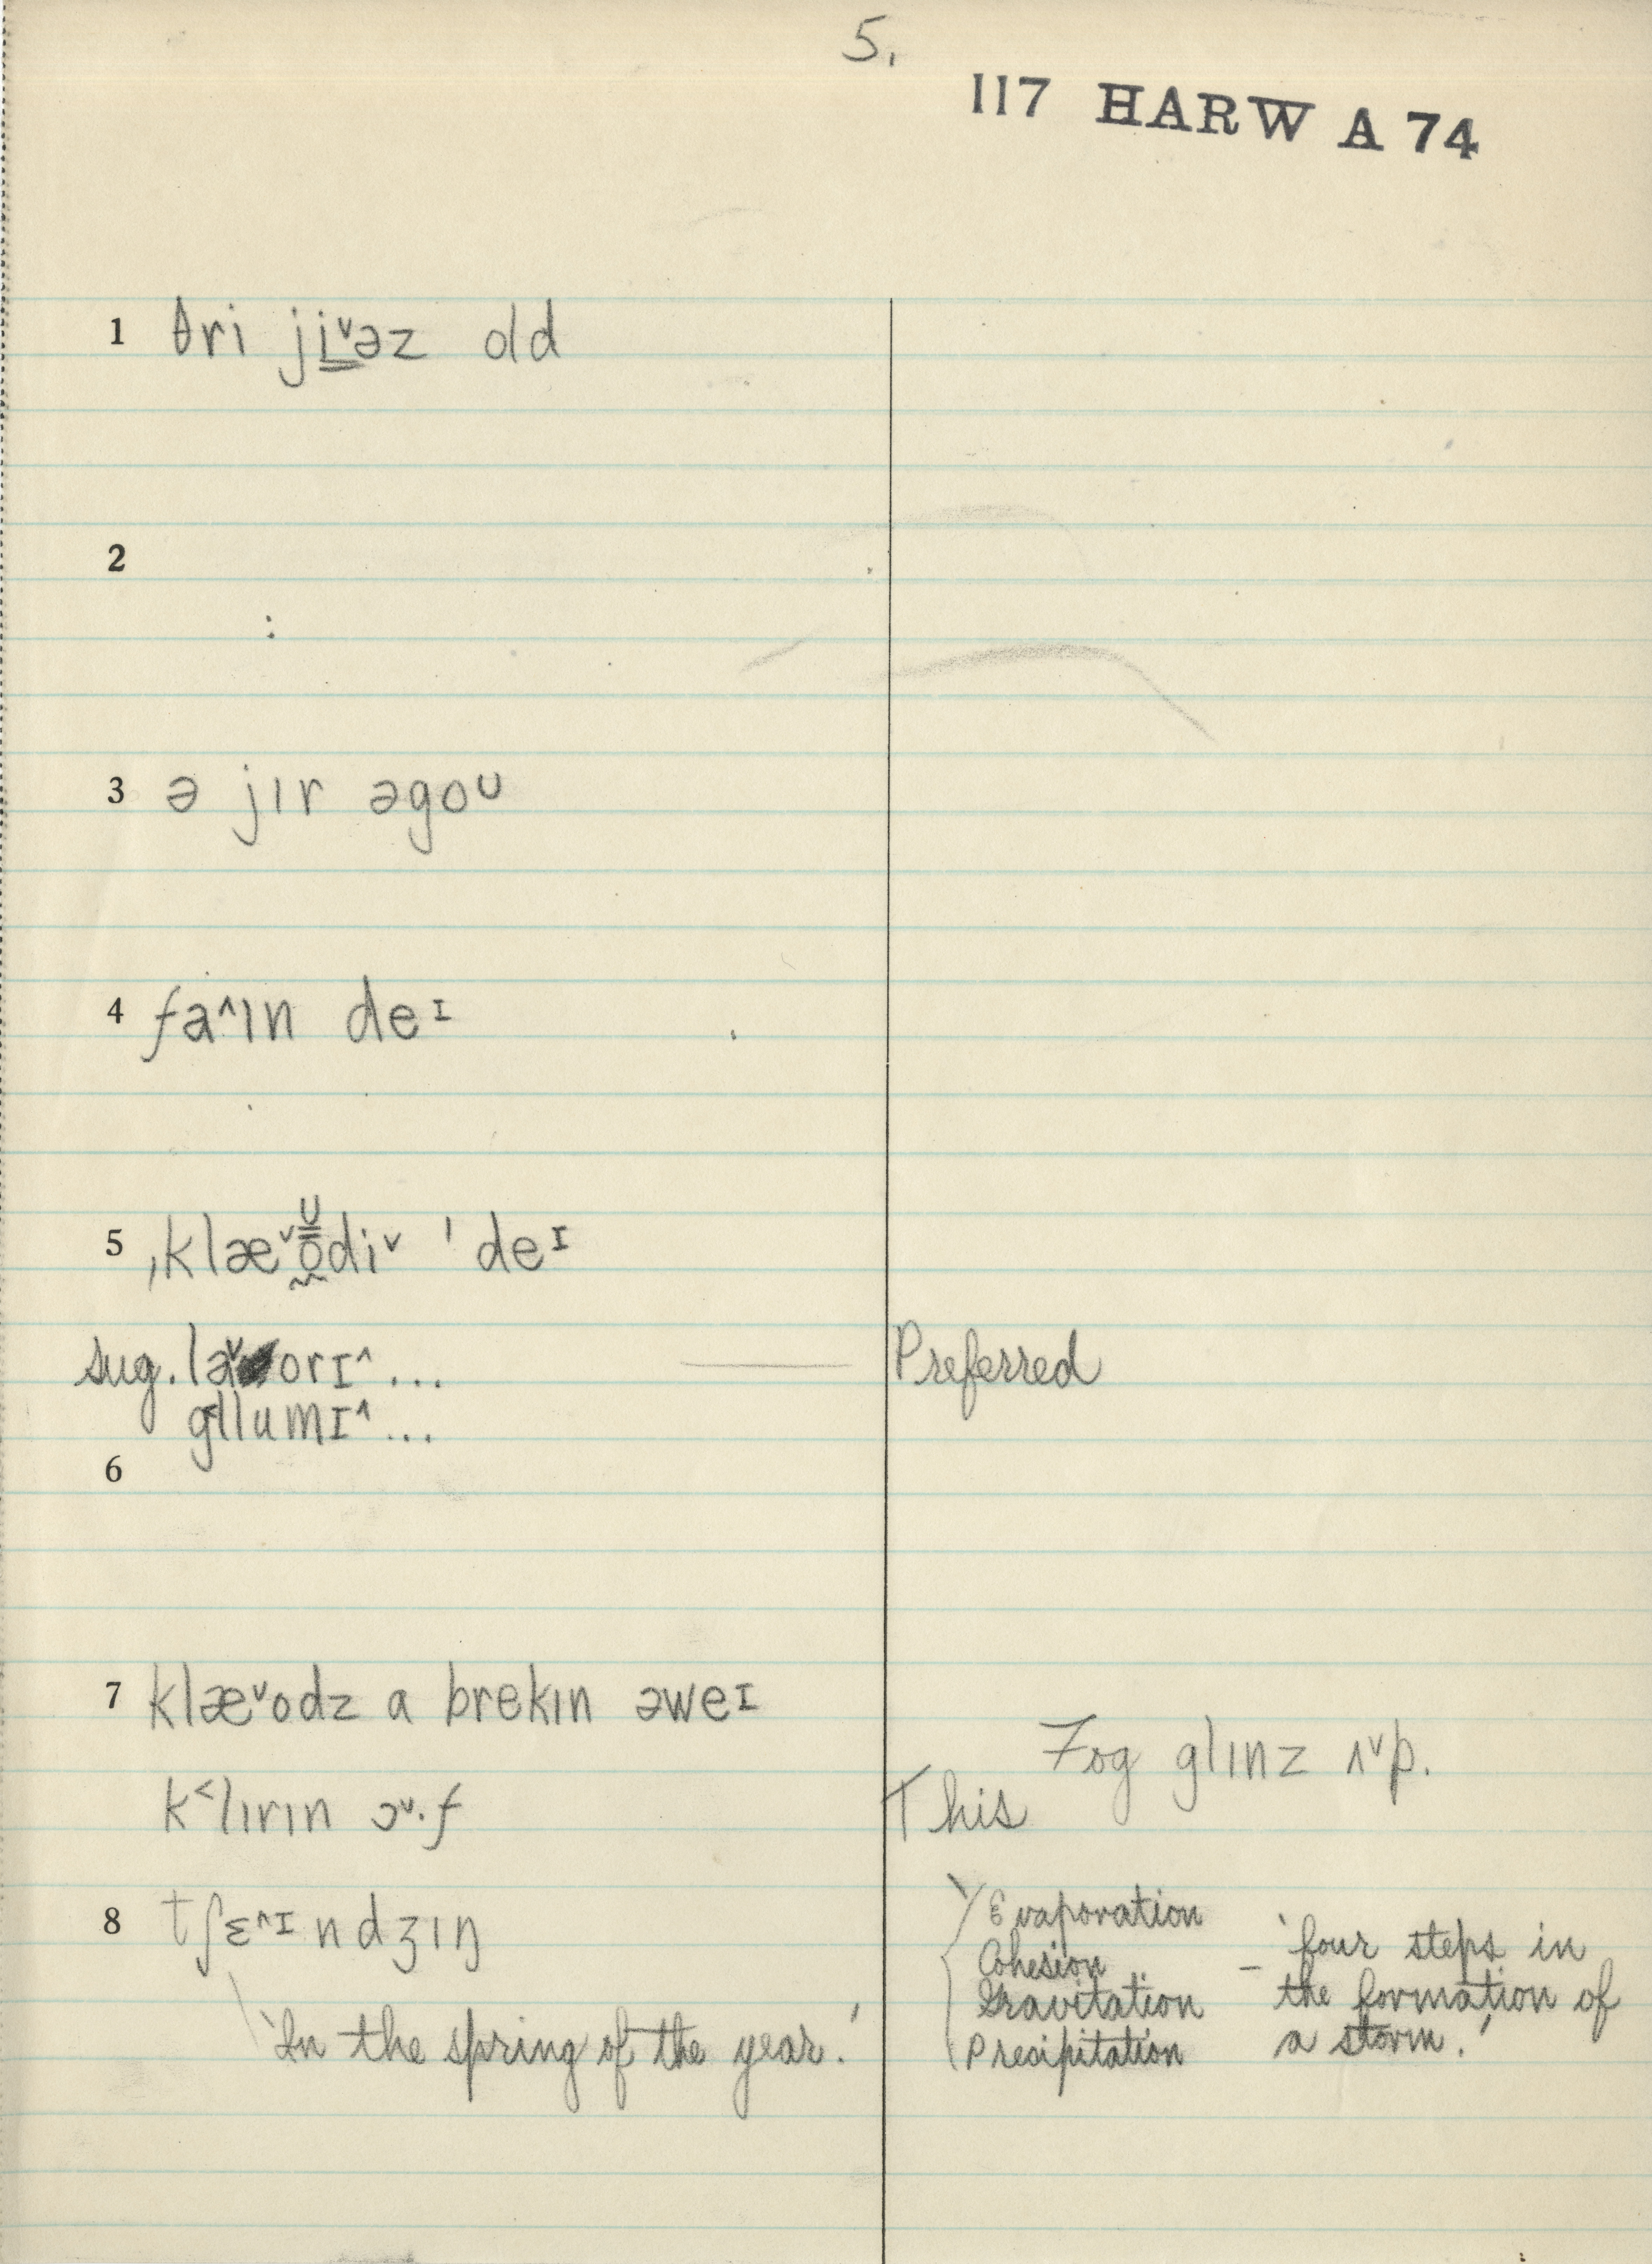 5.
117 HARW A 74
1 θri ji̳˅əz old
2
3 ə jɪr əgoᴜ
4 fa˄ɪn deᴵ
5 ˌklæ˅o̰ᶷdi˅ ˈdeᴵ
sug. la˅orɪ˄ ... Preferred
g˂lumɪ˄ ...
6
7 klæ˅odz a brekɪn əweɪ
Fog glɪnz ʌ˅p.
k˂lɪrɪn ɔ˅·f This
8 tʃɛ˄ᴵndʒɪŋ
'In the spring of the year.'
Evaporation
Cohesion
Gravitation
Precipitation
– 'four steps in
the formation of
a storm.'